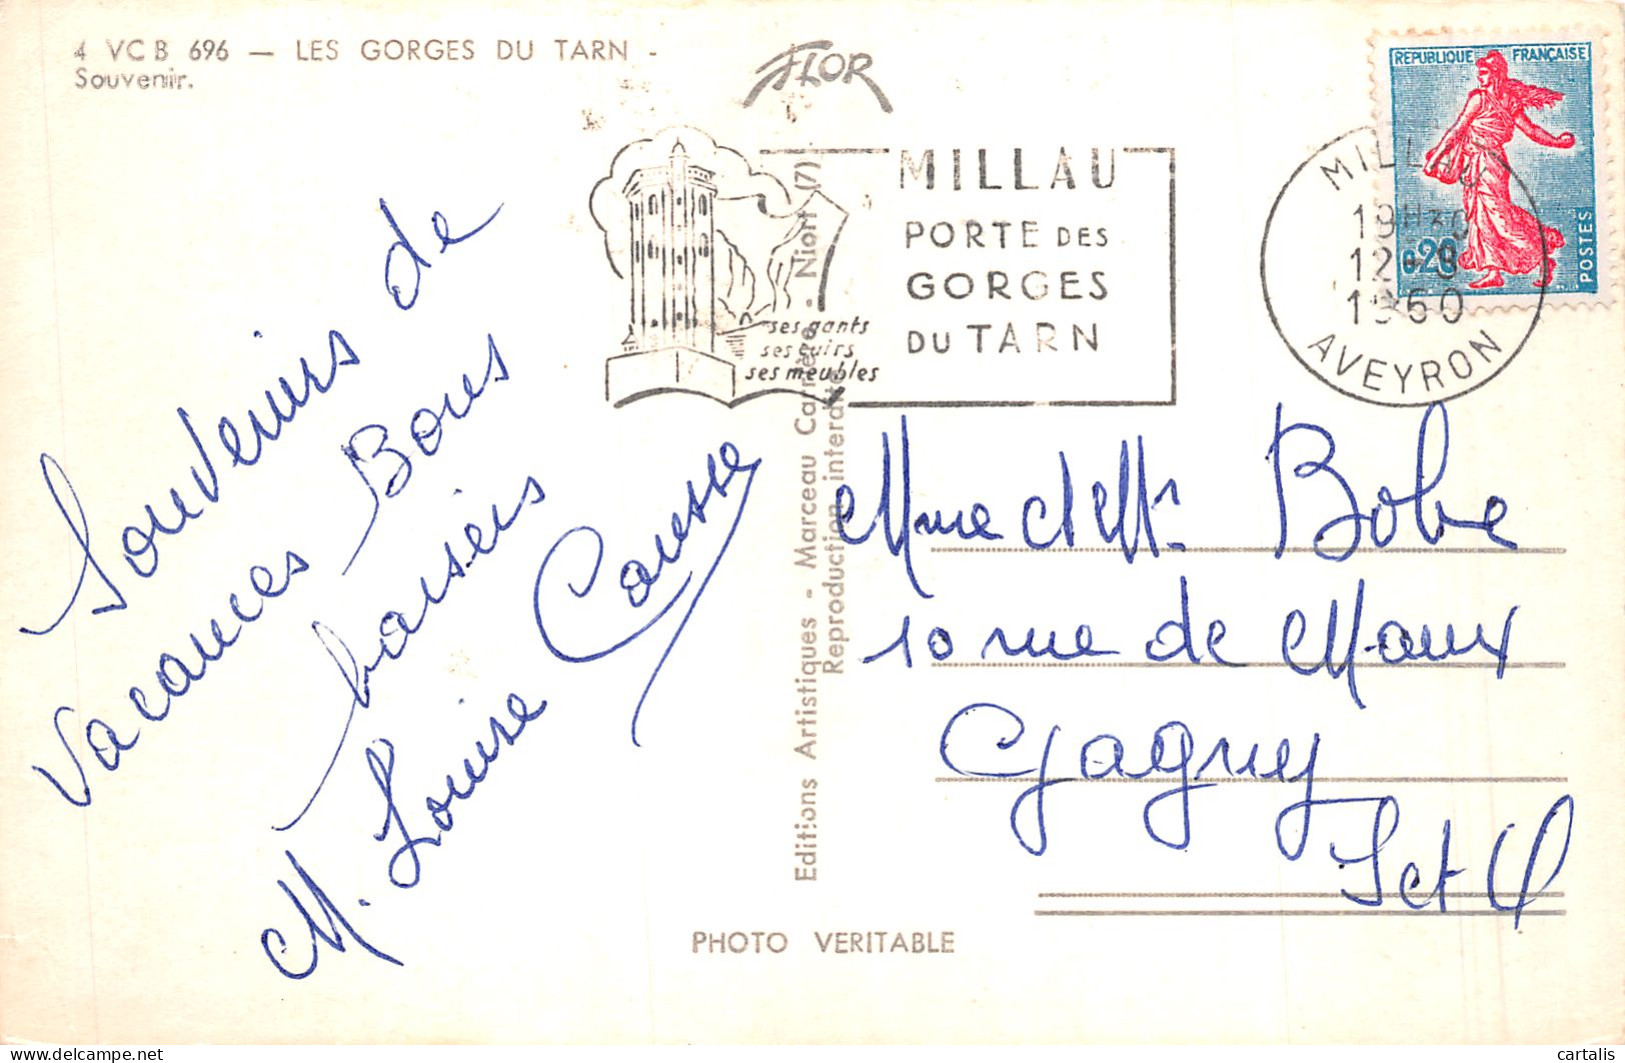 4 VCB 696 — LES GORGES DU TARN -
Souvenir.
FLOR
REPUBLIQUE FRANÇAISE
0,20
POSTES
MILLAU
PORTE DES
GORGES
DU TARN
ses gants
ses cuirs
ses meubles
MILLAU
19H30
12-9
1960
AVEYRON
Souvenirs de
vacances Bons
baisers
M. Louise
Editions Artistiques - Marceau Carrère - Niort (7)
Reproduction interdite
Mme et Mr Bobe
10 rue de Maux
Gagny
S et O
PHOTO VERITABLE
delcampe.net
cartalis